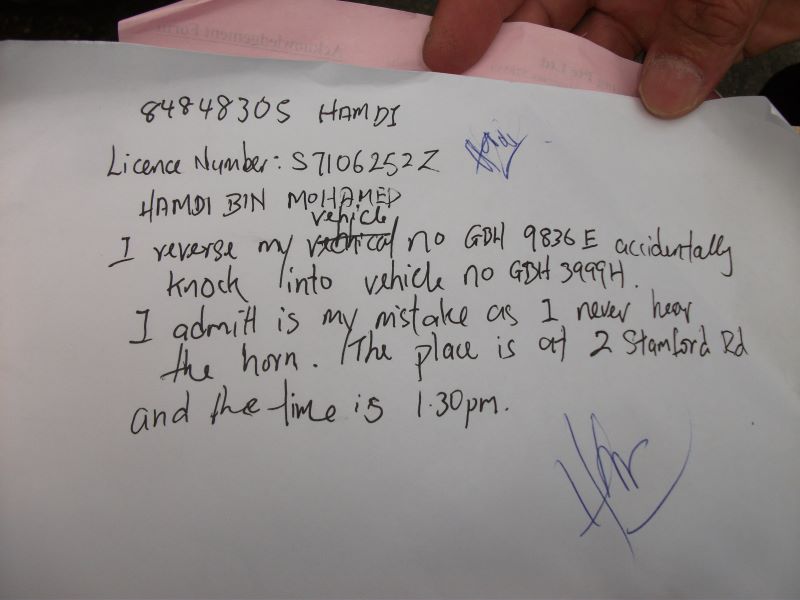 Acknowledgement Form
Pte Ltd
84848305 HAMDI
Licence Number: S7106252Z
HAMDI BIN MOHAMED
vehicle
I reverse my no GBH 9836E accidentally
knock into vehicle no GBH 3999H.
I admitt is my mistake as I never hear
the horn. The place is at 2 Stamford Rd
and the time is 1.30pm.